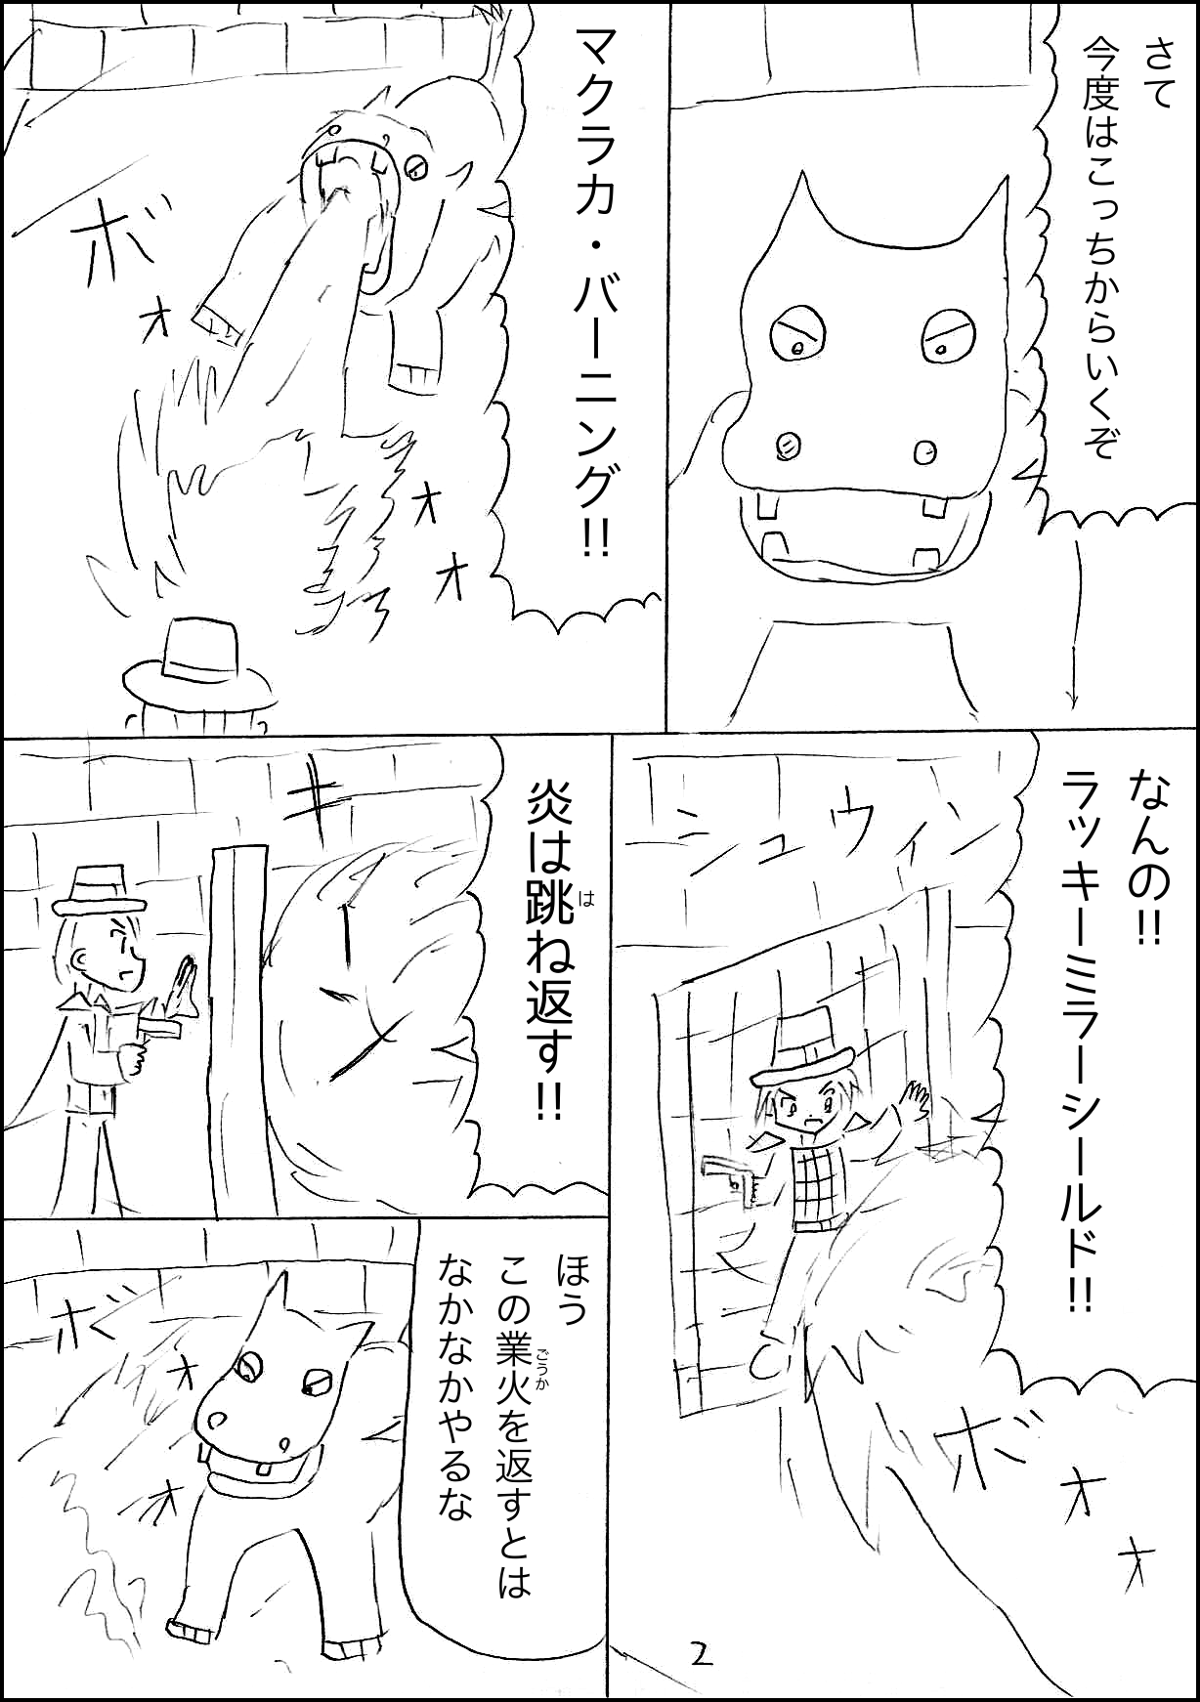 さて
今度はこっちからいくぞ
マクラカ・バーニング!!
ボ
オ
オ
オ
なんの!!
ラッキーミラーシールド!!
シュウィン
ボ
オ
オ
炎は跳ね返す!!
は
キ
ほう
この業火を返すとは
ごうか
なかなかやるな
ボ
オ
オ
2